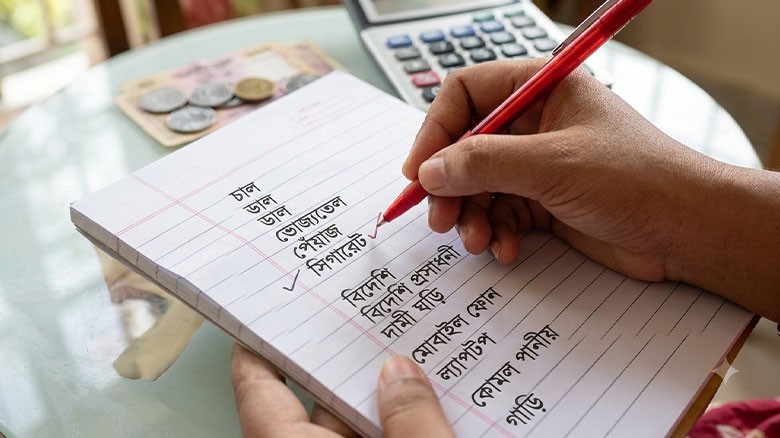 চাল
ডাল
ডাল
ভোজ্যতেল
পেঁয়াজ
সিগারেট
বিদেশি
বিদেশি প্রসাধনী
দামী ঘড়ি
মোবাইল ফোন
ল্যাপটপ
কোমল পানীয়
গাড়ি